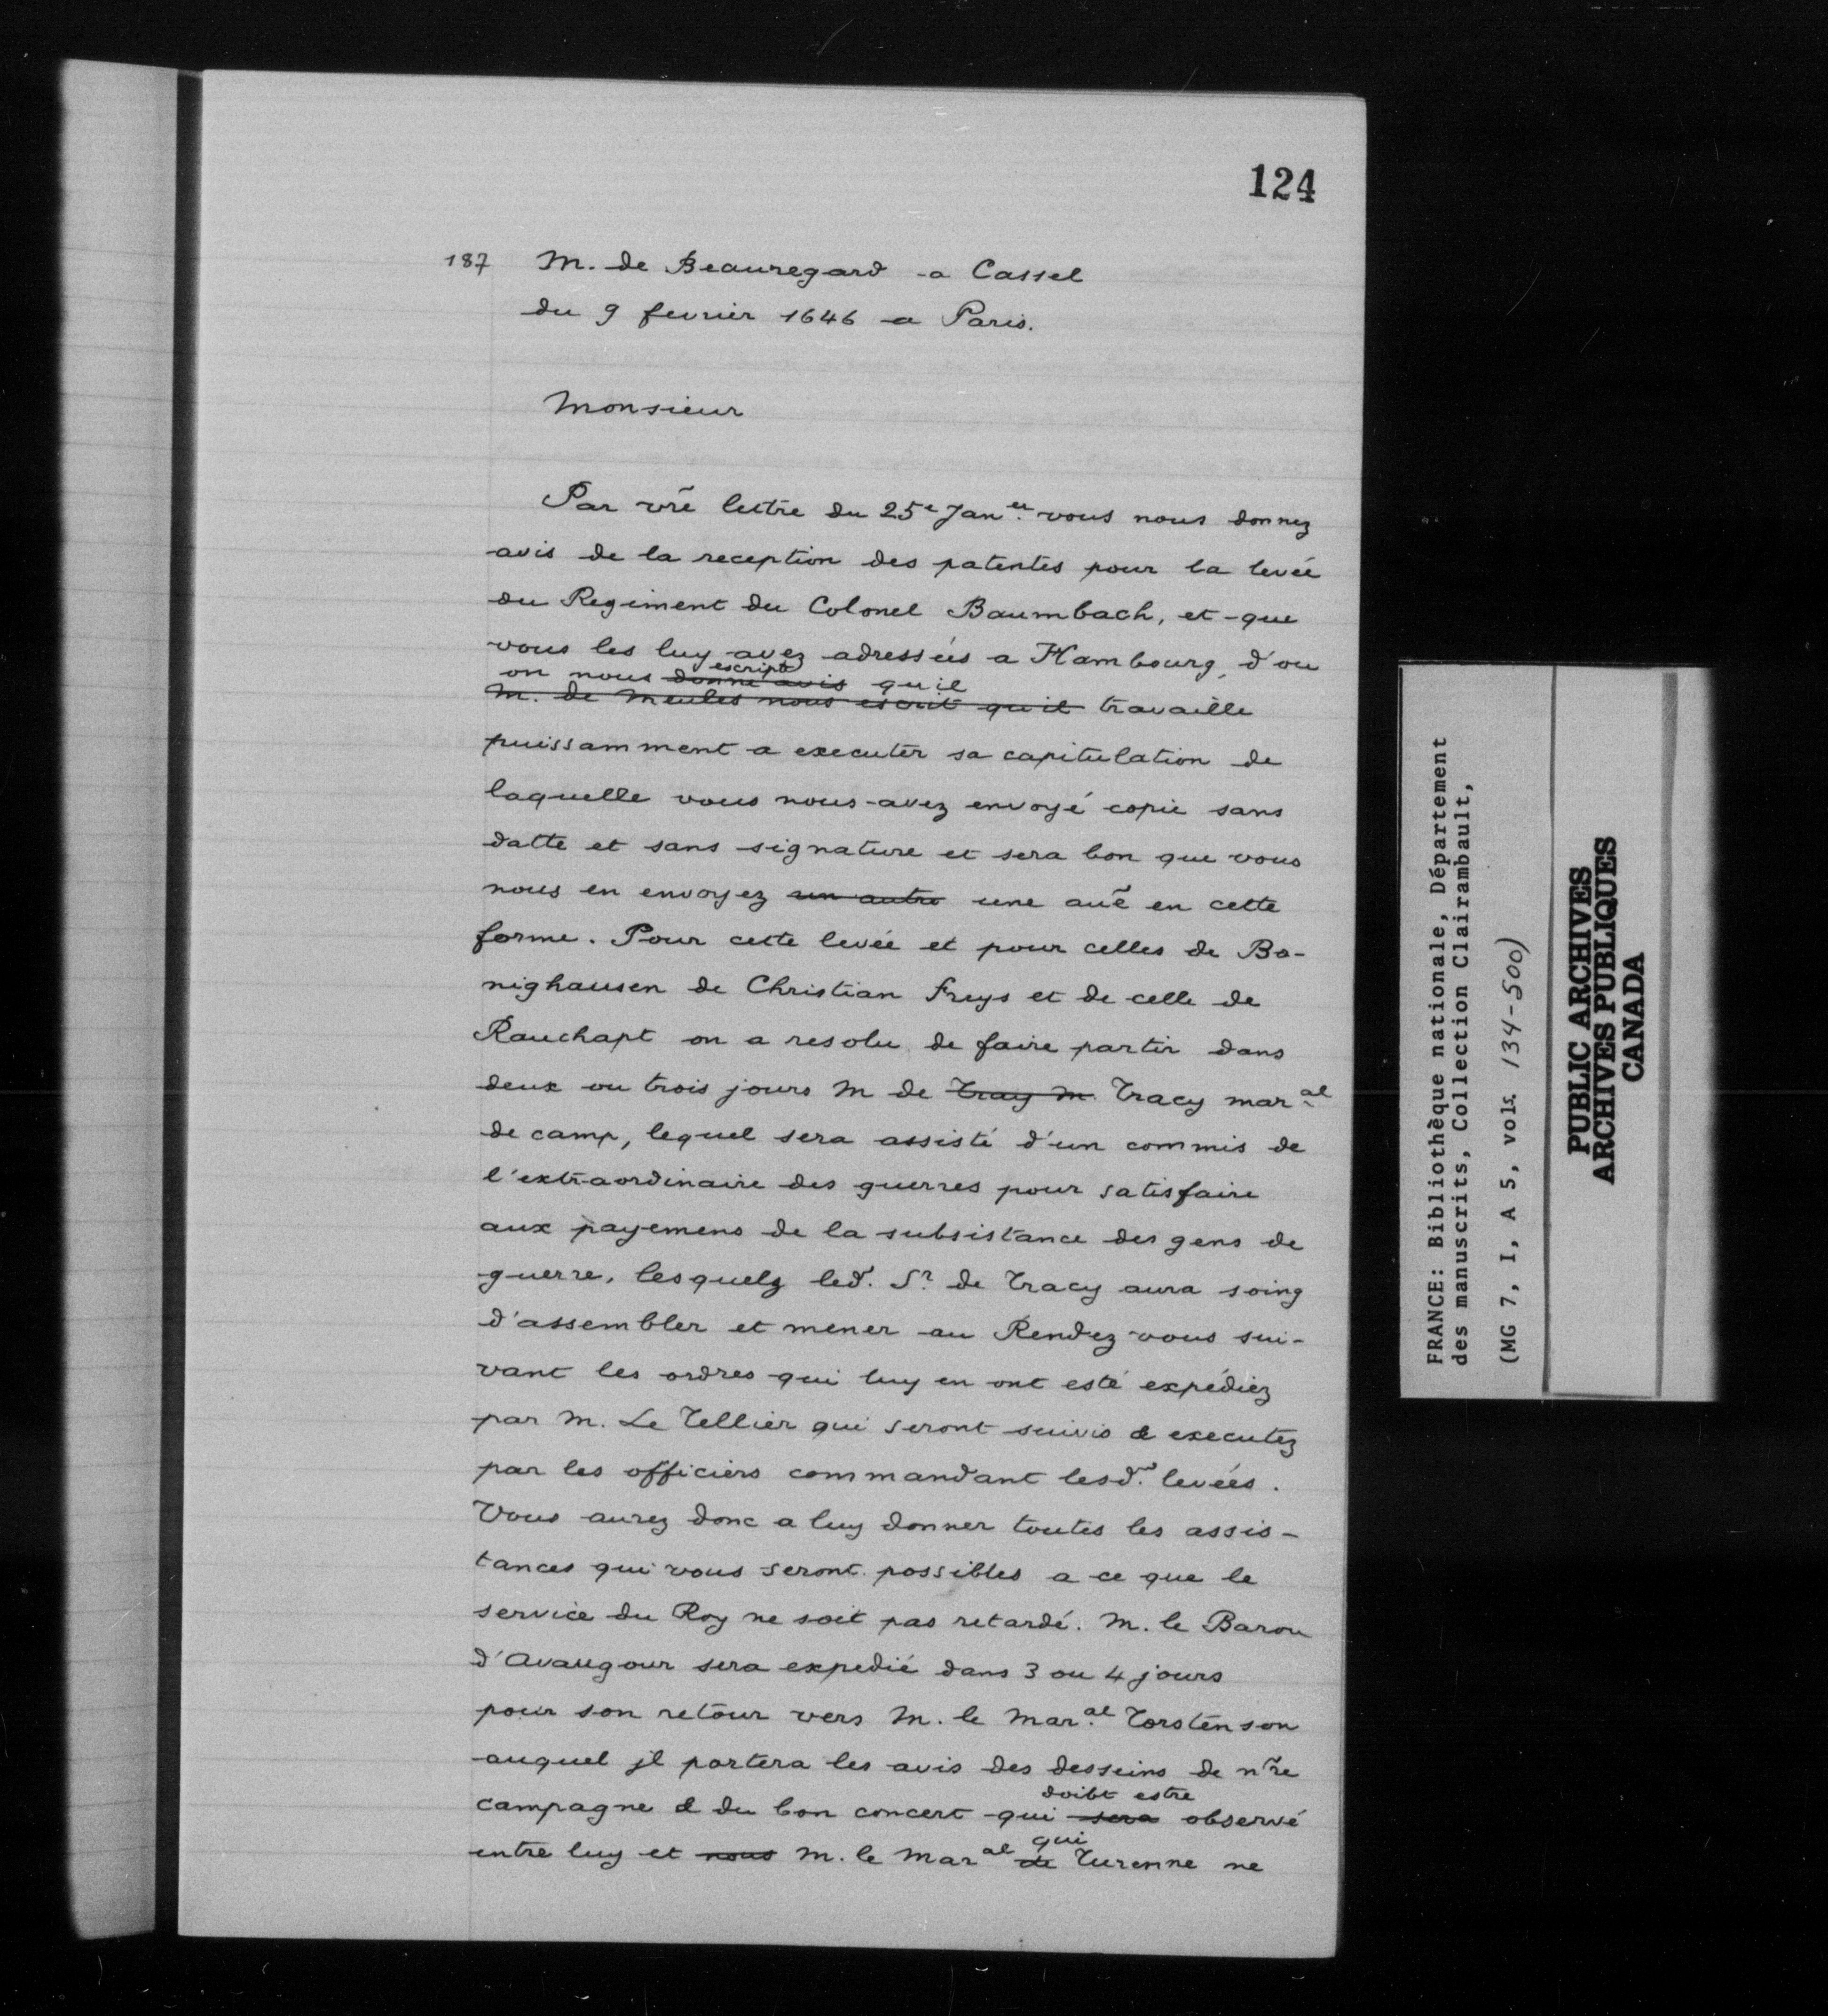 124
187 M. de Beauregard a Cassel
du 9 feurier 1646 a Paris.
Monsieur
Par vr̃e lettre du 25e Janer. vous nous donnez
avis de la reception des patentes pour la levée
du Regiment du Colonel Baumbach, et que
vous les luy avez adressées a Hambourg, d'ou
escript
on nous donne avis qu'il
M. de Meules nous escrit qu'il travaille
puissamment a executer sa capitulation de
laquelle vous nous avez envoyé copie sans
datte et sans signature et sera bon que vous
nous en envoyez un autre une aũe en cette
forme. Pour cette levée et pour celles de Bo-
nighausen de Christian Freys et de celle de
Rauchapt on a resolu de faire partir dans
deux ou trois jours M de Tray M. Tracy maral.
de camp, lequel sera assisté d'un commis de
l'extraordinaire des guerres pour satisfaire
aux payemens de la subsistance des gens de
guerre, lesquelz led. Sr. de Tracy aura soing
d'assembler et mener au Rendez-vous sui-
vant les ordres qui luy en ont esté expédiez
par M. Le Tellier qui seront suivis & executez
par les officiers commandant lesd. levées.
Vous aurez donc a luy donner toutes les assis-
tances qui vous seront possibles a ce que le
service du Roy ne soit pas retardé. M. le Baron
d'Avaugour sera expedié dans 3 ou 4 jours
pour son retour vers M. le Maral. Torstenson
auquel jl portera les avis des desseins de nr̃e
doibt estre
campagne & du bon concert qui sera observé
qui
entre luy et nous M. le Maral de Turenne ne
FRANCE: Bibliothèque nationale, Département
des manuscrits, Collection Clairambault,
(MG 7, I, A 5, vols. 134-500)
PUBLIC ARCHIVES
ARCHIVES PUBLIQUES
CANADA